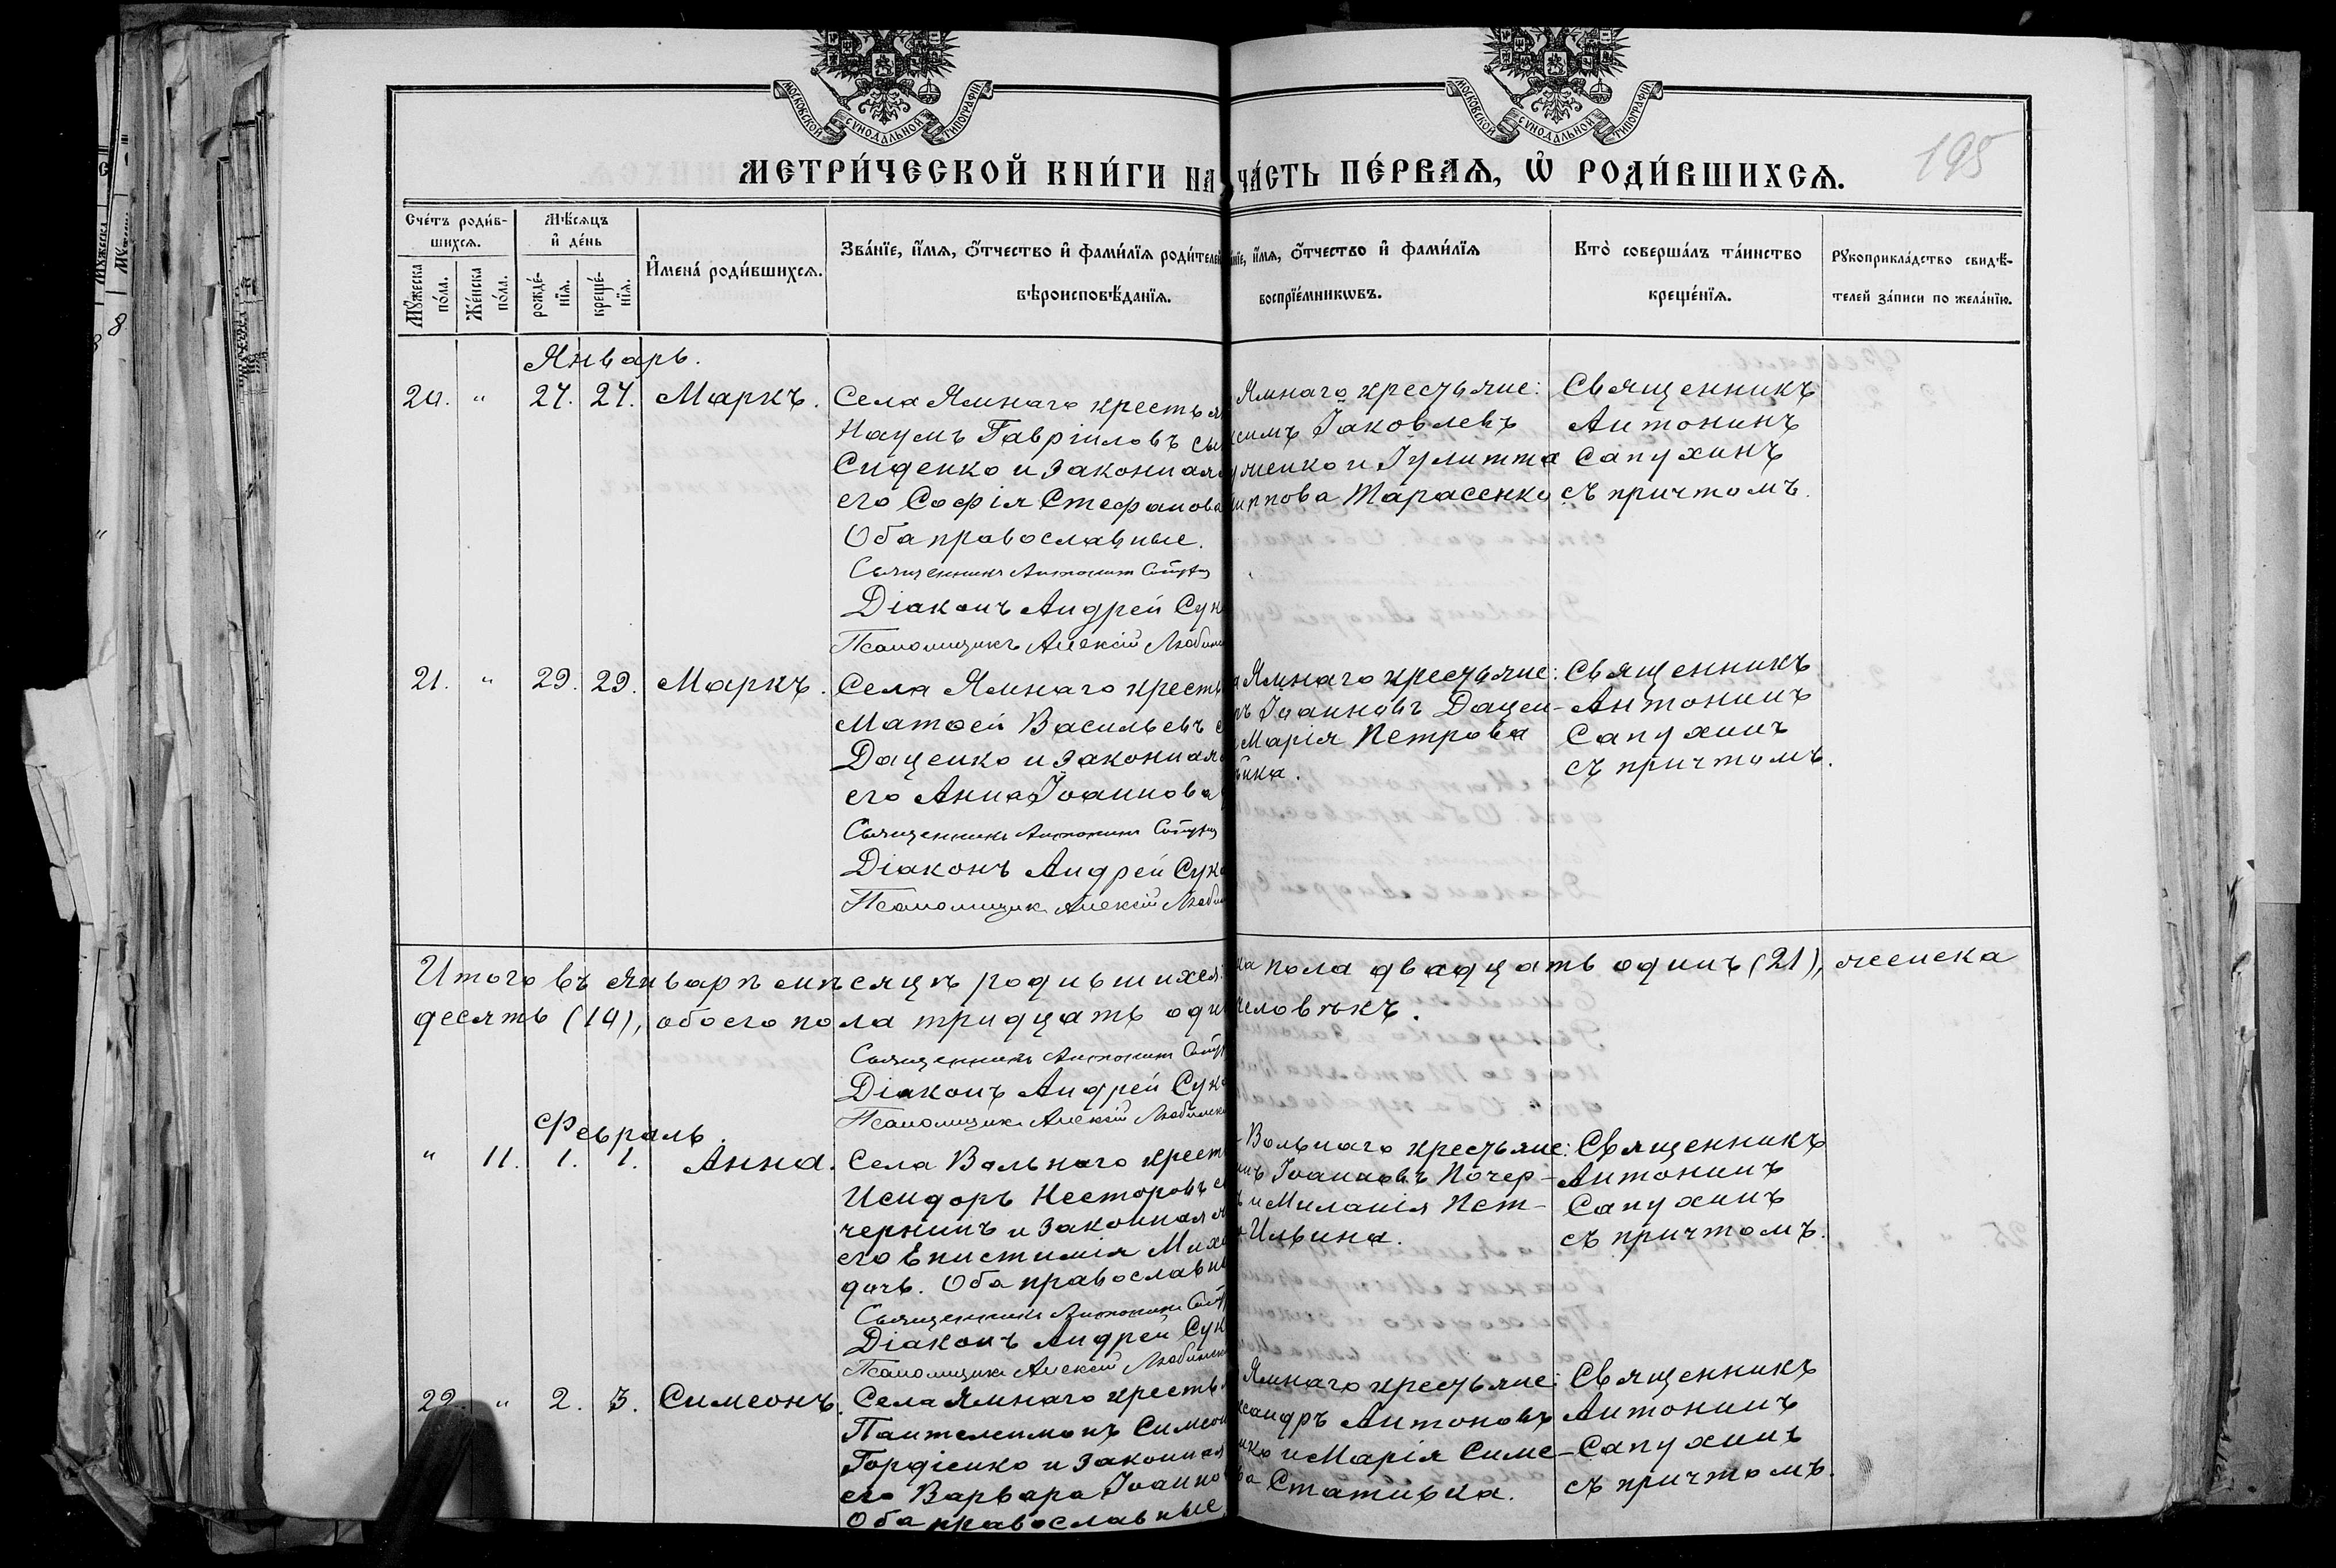 МОСКОВСКОЙ СУНОДАЛЬНОЙ ТИПОГРАФІИ
МОСКОВСКОЙ СУНОДАЛЬНОЙ ТИПОГРАФІИ
195
МЕТРИ́ЧЕСКОЙ КНИ́ГИ НА
ЧА́СТЬ ПЕ́РВАѦ, Ѡ҆ РОДИ́ВШИХСѦ.
Сче́тъ роди́в-
шихсѧ.
Мꙋ́жеска по́ла.
Же́нска по́ла.
Мѣ́сѧцъ
и҆ де́нь
рожде́-
нїѧ.
креще́-
нїѧ.
И҆мена́ роди́вшихсѧ.
Зва́нїе, и҆́мѧ, ѻ҆́тчество и҆ фами́лїѧ роди́телей
вѣроисповѣ́данїѧ.
и҆́мѧ, ѻ҆́тчество и҆ фами́лїѧ
воспрїе́мникѡвъ.
Кто̀ соверша́лъ та́инство
креще́нїѧ.
Рꙋкоприкла́дство свидѣ́-
телей за́писи по жела́нїю.
Январь.
20. " 27. 27. Маркъ.
Села Ямнаго крестья
Наумъ Гавріиловъ сы
Сиденко и законная
его Софія Стефанова
Оба православные.
Священникъ Антонинъ
Діаконъ Андрей Сук
Псаломщикъ Алексій Любим
Ямнаго крестьяне:
симъ Іаковлевъ
менко и Іулитта
иппова Тарасенко
Священникъ
Антонинъ
Сапухинъ
съ причтомъ.
21. " 29. 29. Маркъ.
Села Ямнаго кресть
Матѳей Васильевъ с
Даценко и законная
его Анна Іоаннова
Священникъ Антонинъ
Діаконъ Андрей Сук
Псаломщикъ Алексій Любим
Ямнаго крестьяне:
ръ Іоанновъ Дацен-
Марія Петрова
Священникъ
Антонинъ
Сапухинъ
съ причтомъ.
Итого въ Январѣ мѣсяцѣ родившихся:
ка пола двадцать одинъ (21), женска
десять (10), обоего пола тридцать оди
человѣкъ.
Священникъ Антонинъ
Діаконъ Андрей Сук
Псаломщикъ Алексій Любимск
Февраль.
" 11. 1. 1. Анна.
Села Вольнаго крест
Исидоръ Несторовъ с
чернинъ и законная ж
его Епистимія Миха
дочь. Оба православн
Священникъ Антонинъ
Діаконъ Андрей Сук
Псаломщикъ Алексій Любимск
Вольнаго крестьяне:
нъ Іоанновъ Почер-
ъ и Миланія Пет-
Ильина.
Священникъ
Антонинъ
Сапухинъ
съ причтомъ.
22. " 2. 3. Симеонъ.
Села Ямнаго кресть
Пантелеимонъ Симеон
Гордіенко и законная
его Варвара Іоанно
Оба православные
Ямнаго крестьяне:
ксандръ Антоновъ
нко и Марія Симе-
ва Стативка.
Священникъ
Антонинъ
Сапухинъ
съ причтомъ.